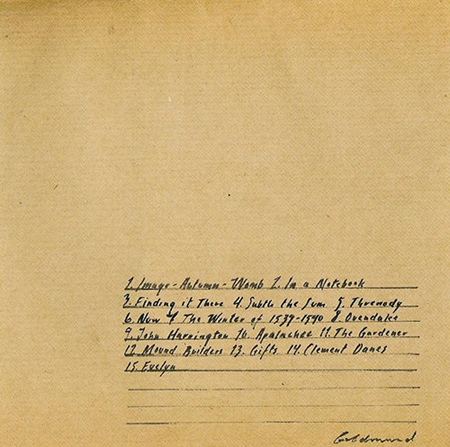 1. Image-Autumn-Womb 2. In a Notebook
3. Finding it There 4. Subtle the Sum 5. Threnody
6. Now 7. The Winter of 1539-1540 8. Ovendake
9. John Harrington 10. Apalachee 11. The Gardener
12. Mound Builders 13. Gifts 14. Clement Danes
15. Evelyn
Goldmund